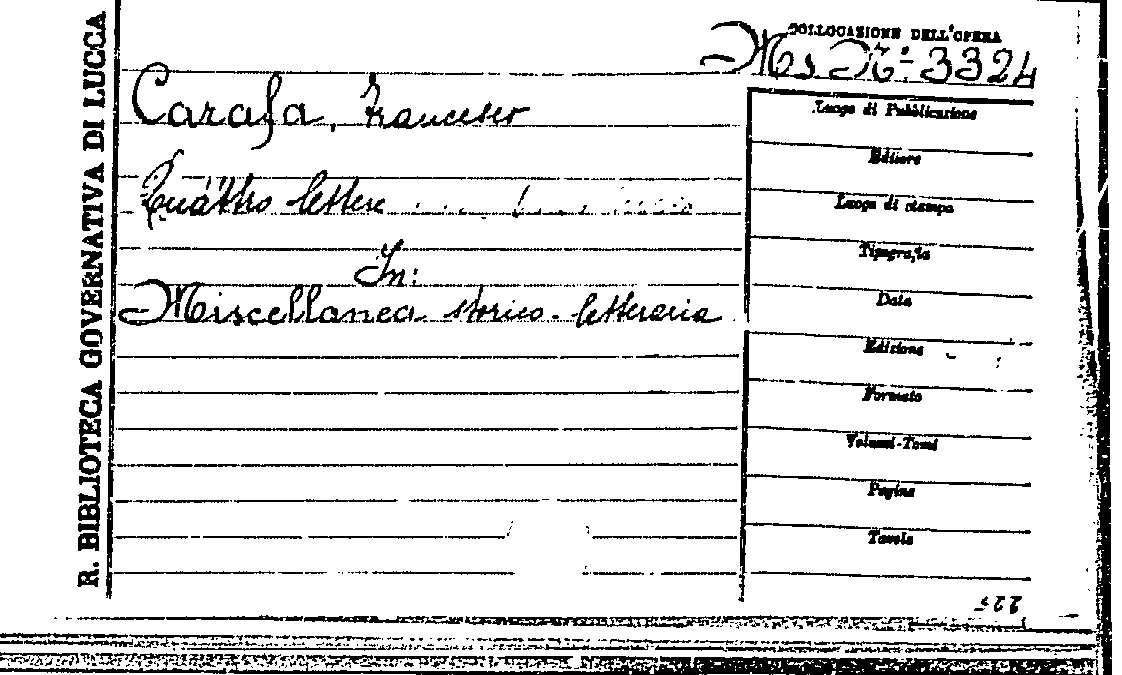 R. BIBLIOTECA GOVERNATIVA DI LUCCA
COLLOCAZIONE DELL'OPERA
Ms N.º 3324
Carafa, Francesco
Quattro lettere
In:
Miscellanea storico-letteraria
Luogo di Pubblicazione
Editore
Luogo di stampa
Tipografia
Data
Edizione
Formato
Volumi-Tomi
Pagine
Tavole
225